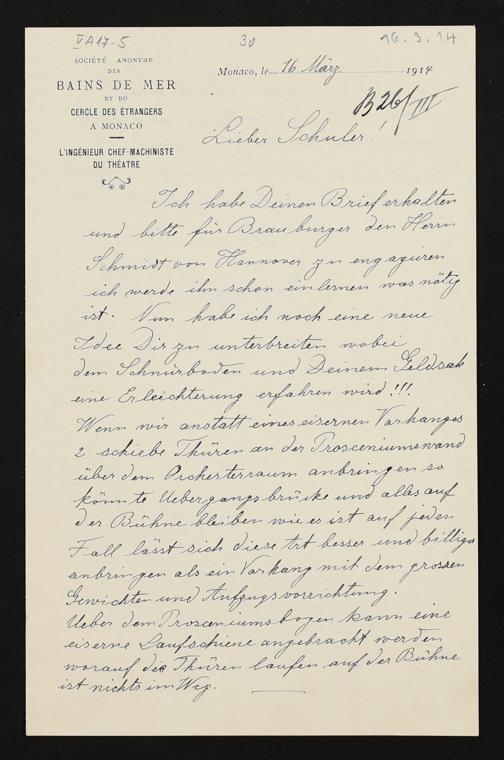 V A 17-5
30
16.3.14
SOCIÉTÉ ANONYME
DES
BAINS DE MER
ET DU
CERCLE DES ÉTRANGERS
A MONACO
L'INGÉNIEUR CHEF-MACHINISTE
DU THÉATRE
Monaco, le 16 März 1914
B 26/III
Lieber Schuler!
Ich habe Deinen Brief erhalten
und bitte für Brauburger den Herrn
Schmidt von Hannover zu engagieren
ich werde ihn schon einlernen was nötig
ist. Nun habe ich noch eine neue
Idee Dir zu unterbreiten wobei
dem Schnürboden und Deinem Geldsak
eine Erleichterung erfahren wird!!!
Wenn wir anstatt eines eisernen Vorhanges
2 schiebe Thüren an der Prosceniumswand
über dem Orchesterraum anbringen so
könnte Uebergangsbrücke und alles auf
der Bühne bleiben wie es ist auf jeden
Fall lässt sich diese Art besser und billiger
anbringen als ein Vorhang mit dem grossen
Gewichten und Aufzugsvorrichtung.
Ueber dem Prosceniumsbogen kann eine
eiserne Laufschiene angebracht werden
worauf die Thüren laufen auf der Bühne
ist nichts im Weg.